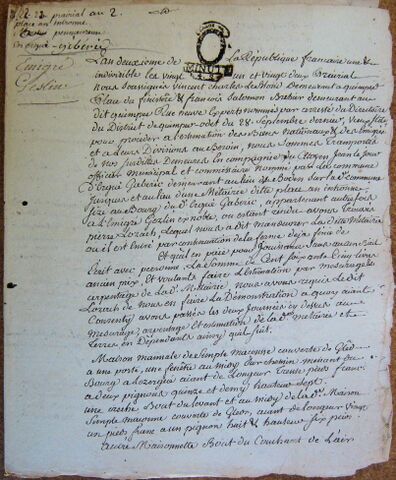 21. 22 prairial an 2.
place an intronne
en Ergué-gaberic
Emigré
Geslin
MINUTE
L'an deuxieme de La République francaise une &
indivisible les vingt un et vingt deux Prairial
nous soussignés vincent charles Le blond Demeurant a quimper
Place du finistere & francois Salomon Brebier demeurant au
dit quimper Rue neuve Experts nommés par arresté du Directoire
du District de quimper en datte du 28 Septembre dernier
pour procéder a l'estimation des Biens nationaux & des Emigrés
et a Leurs Divisions au Besoin, nous Sommes transportés
de nos susdittes Demeures En compagnie du Citoyen Jean le Jour
officier municipal et commissaire nommé par La commune
D'Ergué Gaberic demeurant au lieu de Bodenn Sur La ditte commune
jusques et au lieu d'une Métairie ditte place an intronne
size au Bourg d'Ergué Gaberic, appartenant autrefois
a L'émigré Geslin Ex noble, ou estant rendu avons trouvé
pierre Lozach, Lequel nous a dit manoeuvrer La ditte Métairie
ou il est Entré par continuation de La ferme deja finie de
et qu'il en paie pour Jouissance sans aucun
Ecrit avec personne La somme de Cent soixante Cinq Livres
an en prix. Et voulants faire L'estimation par mesurage &
arpentage de La dte Métairie, nous avons requis Le dit
Lozach de nous en faire La Démonstration a quoi aiant
Consenty avons passés les deux Journées cy dessus au
mesurage, arpentage et estimation de La dte métairie et
terres en Dépendantes ainsy qui suit.
Maison manale de simple maconne couverte de Gled
a une porte, un fenêtre au midy Sur chemin menant du
Bourg a Lezergué aiant de Longeur trente pieds franc
a deux pignons quinze et demy hauteur sept.
une creche Bout du Levant et au midy de La dte Maison
Simple maconne couverte de Gleds, aiant de longeur vingt
un pieds franc a un pignon huit & hauteur six pieds
autre Maisonnette Bout du Couchant de L'aire